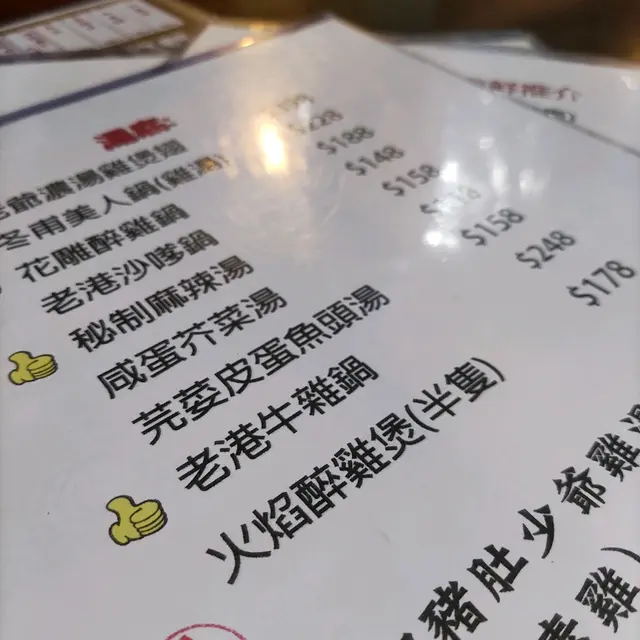 湯底
爺濃湯雞煲鍋
冬甪美人鍋(雞湯) $228
花雕醉雞鍋 $188
老港沙嗲鍋 $148
秘制麻辣湯 $158
咸蛋芥菜湯
芫荽皮蛋魚頭湯 $158
老港牛雜鍋 $248
火焰醉雞煲(半隻) $178
豬肚少爺雞湯
素雞)
鮮推介